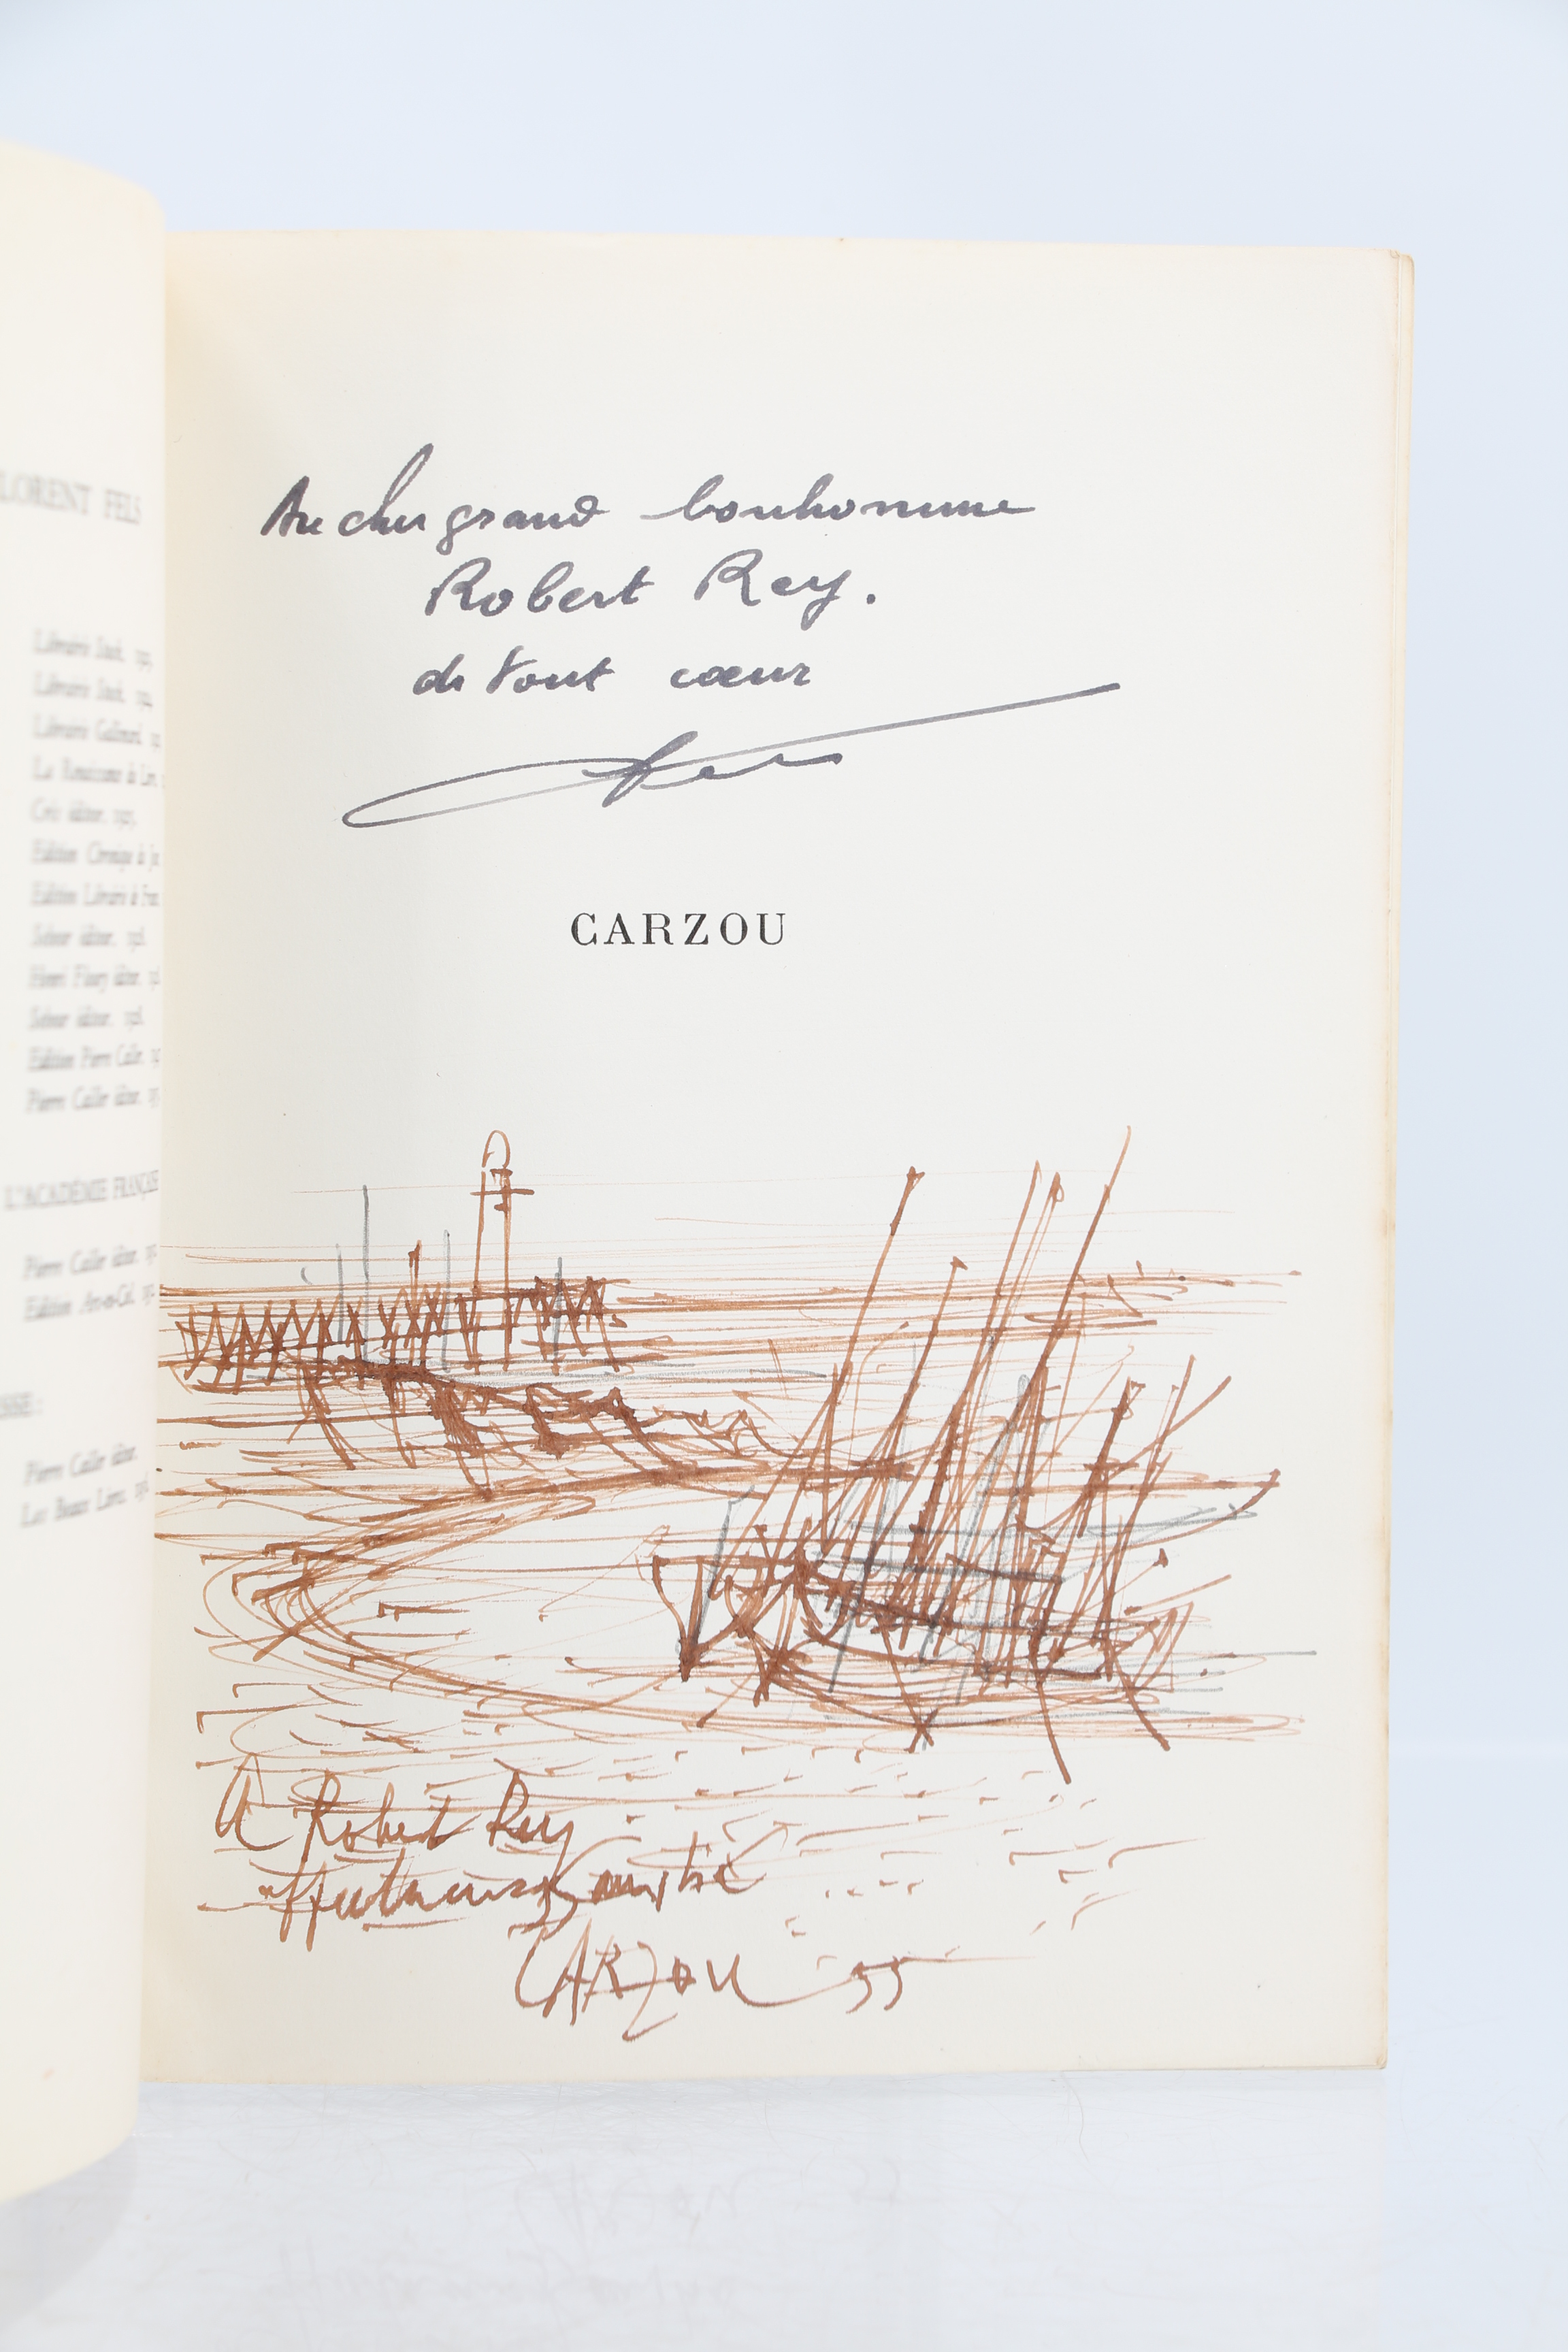 LORENT FELS
Librairie
Librairie
Librairie Gallimard.
La Renaissance du Livre.
éditeur. 1925.
Édition Chronique du
Édition Librairie de
éditeur.
Henri Floury éditeur.
éditeur.
Édition Pierre Cailler.
Pierre Cailler éditeur.
L'ACADÉMIE FRANÇAISE
Pierre Cailler éditeur.
Édition
SSE :
Pierre Cailler éditeur.
Les Beaux Livres.
Au cher grand bonhomme
Robert Rey.
de tout cœur
Fels
CARZOU
A Robert Rey
affectueuse amitié
CARZOU 55